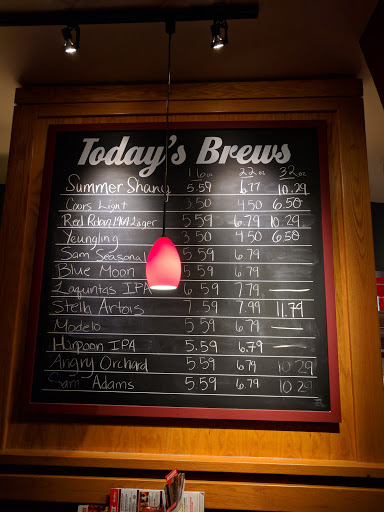 Today's Brews
16oz 22oz 32oz
Summer Shandy 5.59 6.77 10.29
Coors Light 3.50 4.50 6.50
Red Robin 1969 Lager 5.59 6.79 10.29
Yeungling 3.50 4.50 6.50
Sam Seasonal 5.59 6.79
Blue Moon 5.59 6.79
Laquntas IPA 6.59 7.79 —
Stella Artois 7.59 7.99 11.79
Modelo 5.59 6.79 —
Harpoon IPA 5.59 6.79 —
Angry Orchard 5.59 6.79 10.29
Sam Adams 5.59 6.79 10.29